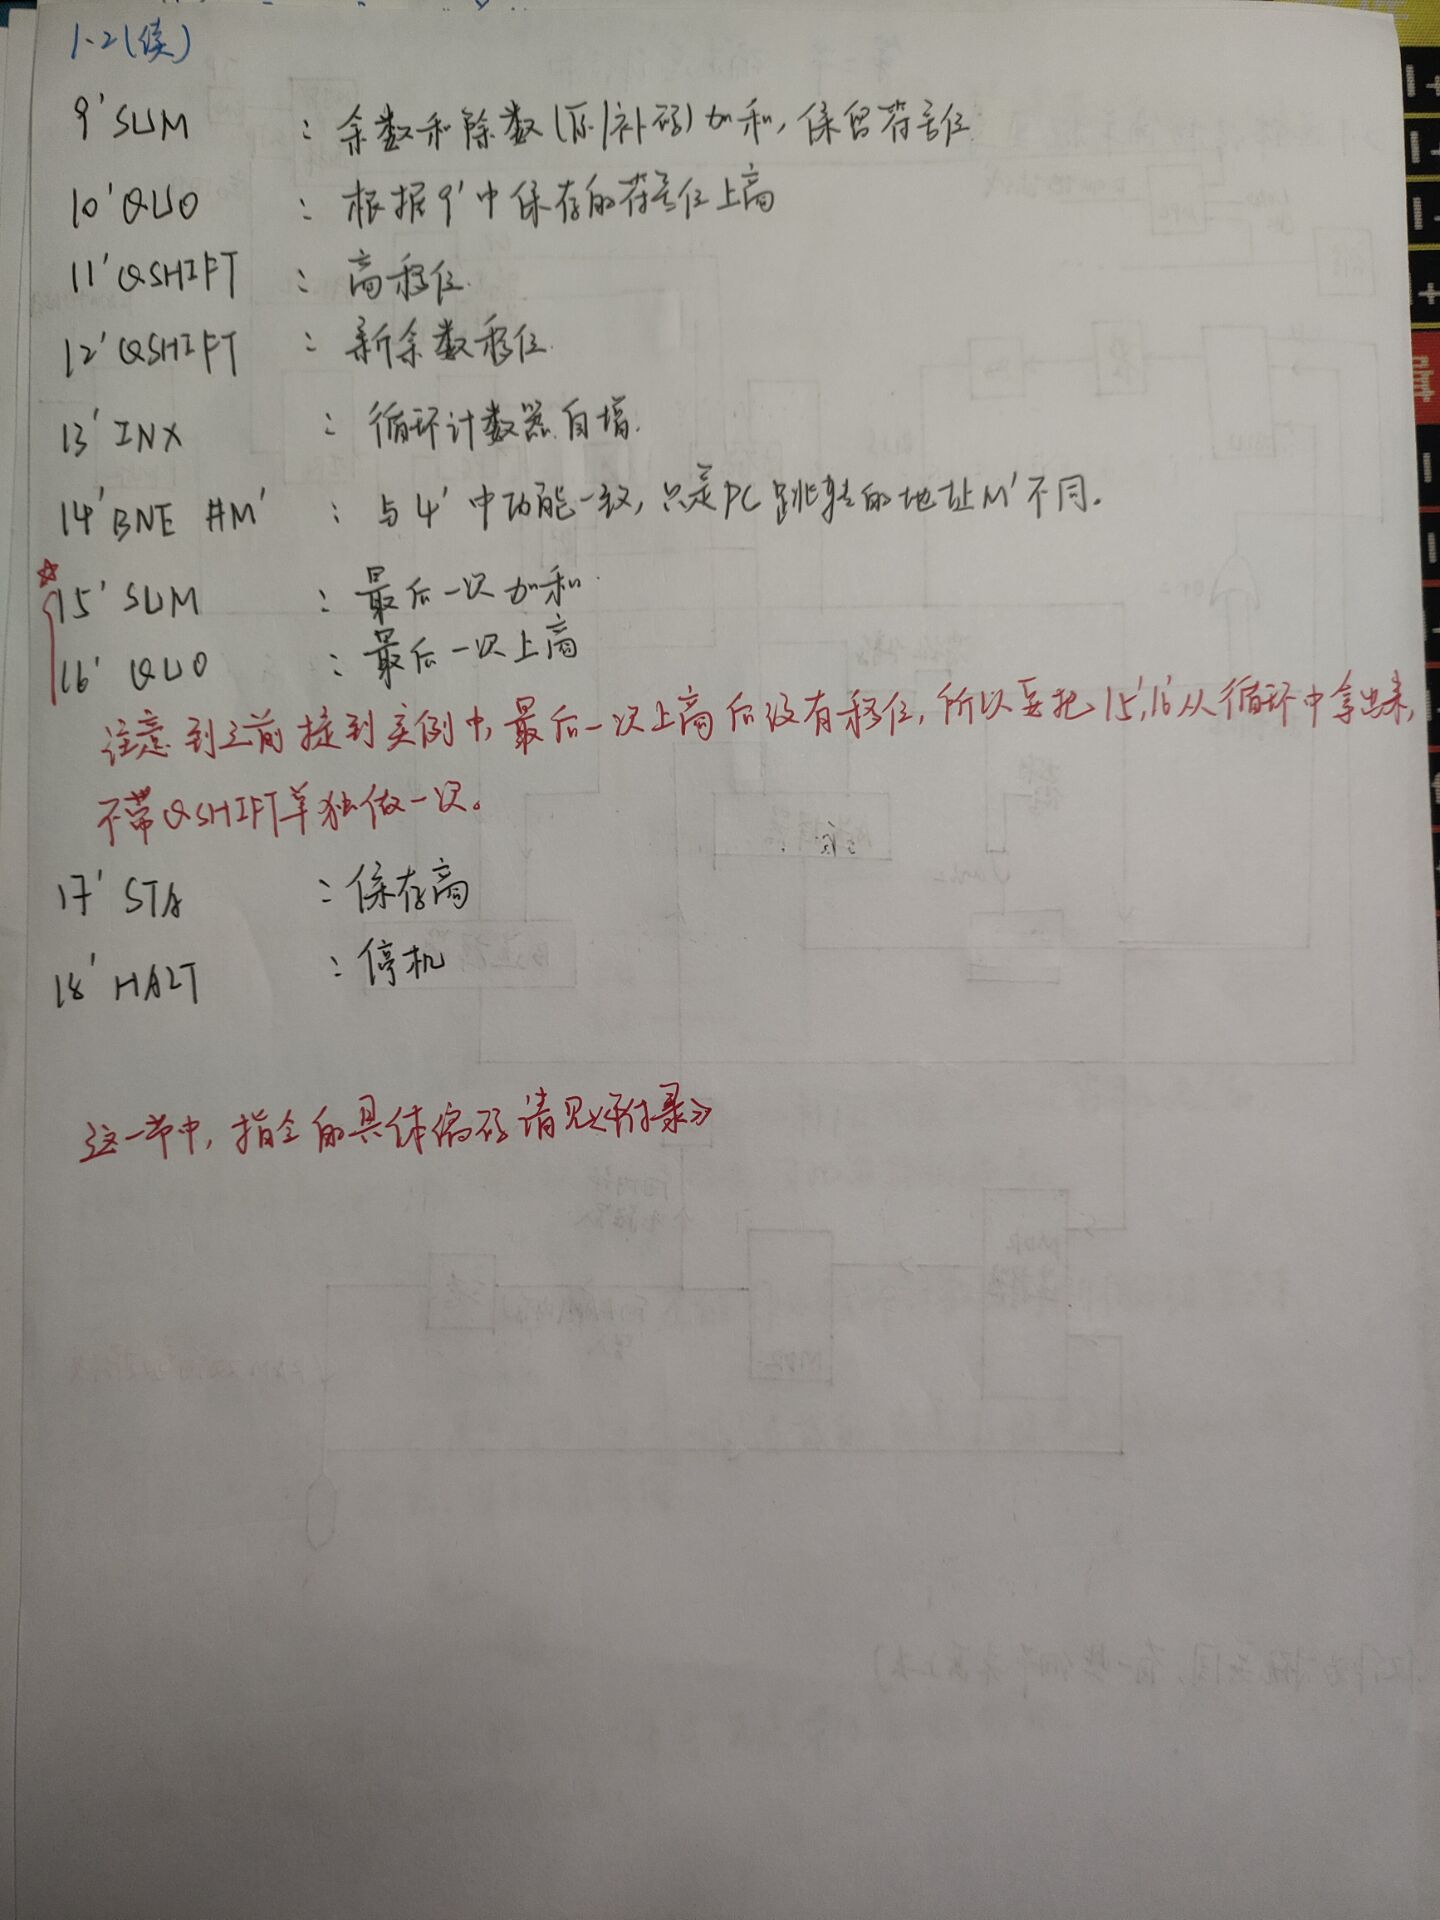 1.2(续)
9' SUM : 余数和除数(原/补码)加和,保留符号位
10' QUO : 根据9'中保存的符号位上商
11' QSHIFT : 商移位.
12' QSHIFT : 新余数移位.
13' INX : 循环计数器自增.
14' BNE #M' : 与4'中功能一致,只是PC跳转的地址M'不同。
15' SUM : 最后一次加和.
16' QUO : 最后一次上商
注意到之前提到实例中,最后一次上商后没有移位,所以要把15',16'从循环中拿出来,
不带QSHIFT单独做一次。
17' STA : 保存商
18' HALT : 停机
这一节中,指令的具体编码请见《附录》